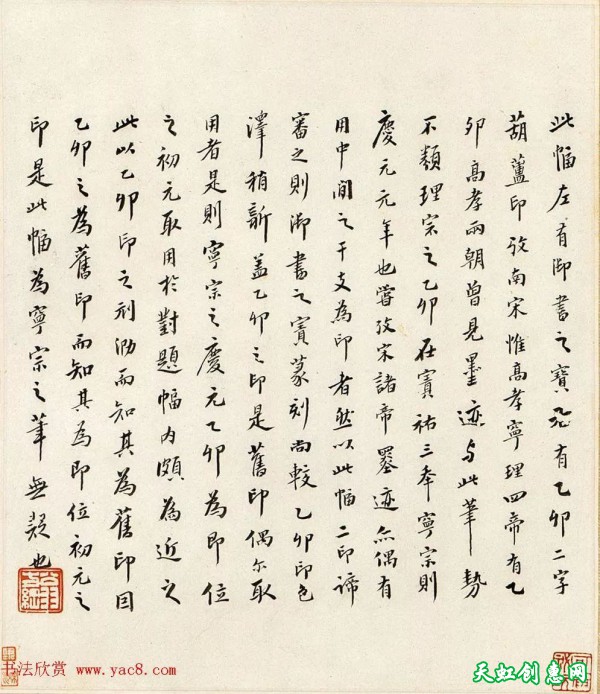 此幅左有御書之寶有乙卯二字
葫蘆印攷南宋惟高孝寧理四帝有乙
卯高孝兩朝曾見墨迹与此筆勢
不類理宗之乙卯在寶祐三年寧宗則
慶元元年也嘗攷宋諸帝墨迹亦偶有
用中間之干支為印者然以此幅二印諦
審之則御書之寶篆刻尚較乙卯印色
澤稍新蓋乙卯之印是舊印偶尔取
用者是則寧宗之慶元乙卯為即位
之初元取用於對題幅內頗為近之
此以乙卯印之刓泐而知其為舊印因
乙卯之為舊印而知其為即位初元之
印是此幅為寧宗之筆無疑也
翁方綱
书法欣赏 www.yac8.com
天虹创意网